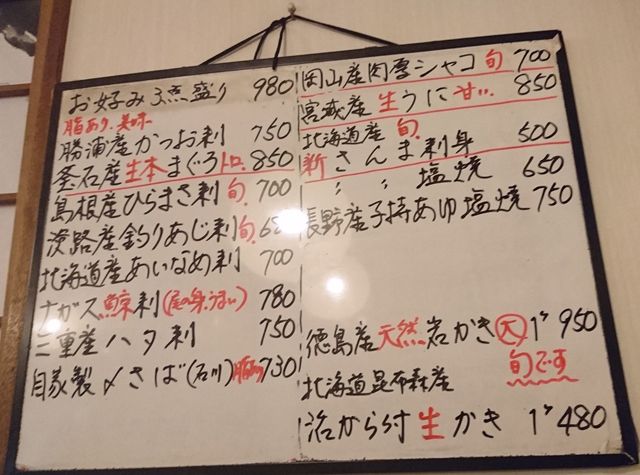 お好み3点盛り 980
脂あり、美味
勝浦産かつお刺 750
釜石産生本まぐろトロ 850
島根産ひらまさ刺旬 700
淡路産釣りあじ刺旬
北海道産あいなめ刺 700
ナガス鯨刺(尾の身、うまい) 780
三重産ハタ刺 750
自家製〆さば(石川) 730
岡山産肉厚シャコ 旬 700
宮城産 生うに甘い 850
北海道産 旬
新さんま刺身 500
〃 〃 塩焼 650
長野産子持あゆ塩焼 750
徳島産天然岩かき大 1ケ 950
旬です
北海道昆布森産
殻付生かき 1ケ 480